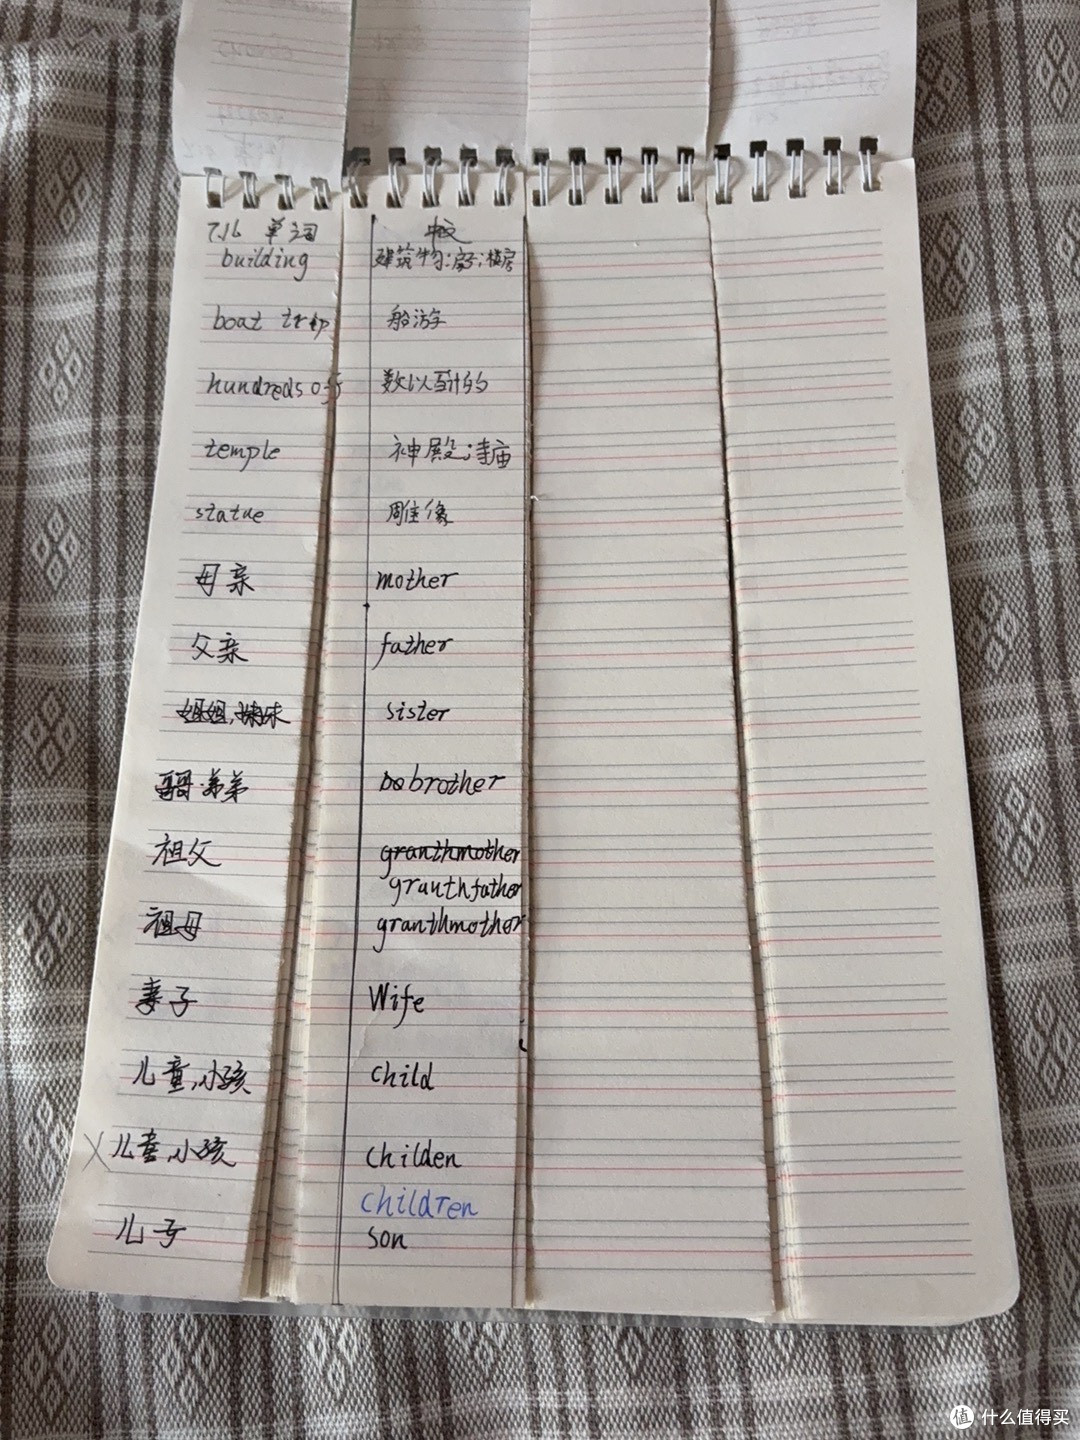 7.16 单词 中文
building 建筑物;房子;楼房
boat trip 船游
hundreds of 数以百计的
temple 神殿;寺庙
statue 雕像
母亲 mother
父亲 father
姐姐,妹妹 sister
哥哥.弟弟 brother
祖父 granthmother
granthfather
祖母 granthmother
妻子 Wife
儿童,小孩 child
X 儿童,小孩 childen
children
儿子 son
值 什么值得买